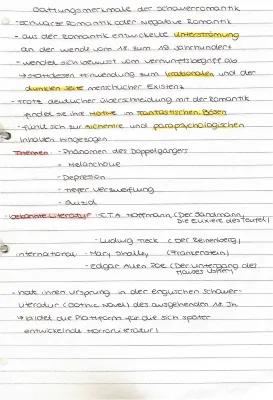 Gattungsmerkmale der Schauerromantik
- schwarze Romantik oder negative Romantik
- aus der Romantik entwickelte Unterströmung
an der wende vom 18. zum 19. Jahrhundert
- wendet sich bewusst vom vernunftsbegriff ab
→ stattdessen Hinwendung zum Irrationalen und der
dunklen Seite menschlicher Existenz
- trotz deutlicher überschneidung mit der Romantik
findet sie ihre Motive im Fantastischen, Bösen
- fühlt sich zur Alchemie und parapsychologischen
Inhalten hingezogen
Themen: - Phänomen des Doppelgängers
- Melancholie
- Depression
- tiefer Verzweiflung
- Suizid
bekannte Literatur: - E.T.A. Hoffmann (Der Sandmann,
Die Elixiere des Teufels)
- Ludwig Tieck (Der Runenberg)
international: - Mary Shelley (Frankenstein)
- Edgar Allen Poe (Der Untergang des
Hauses Usher)
- hat ihren Ursprung in der englischen Schauer-
literatur (Gothic Novel) des ausgehenden 18. Jh.
→ bildet die Plattform für die sich später
entwickelnde Horrorliteratur!